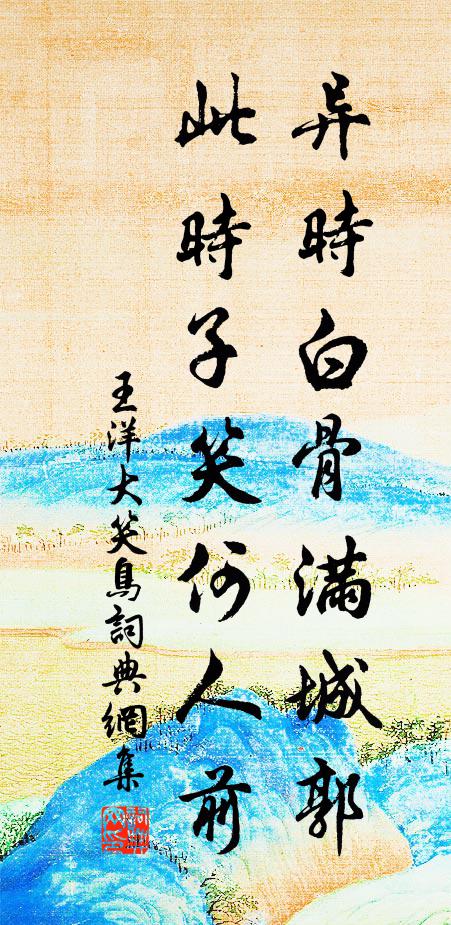 异時白骨滿城郭
此時子笑何人前
王洋大笑鳥詞典網集